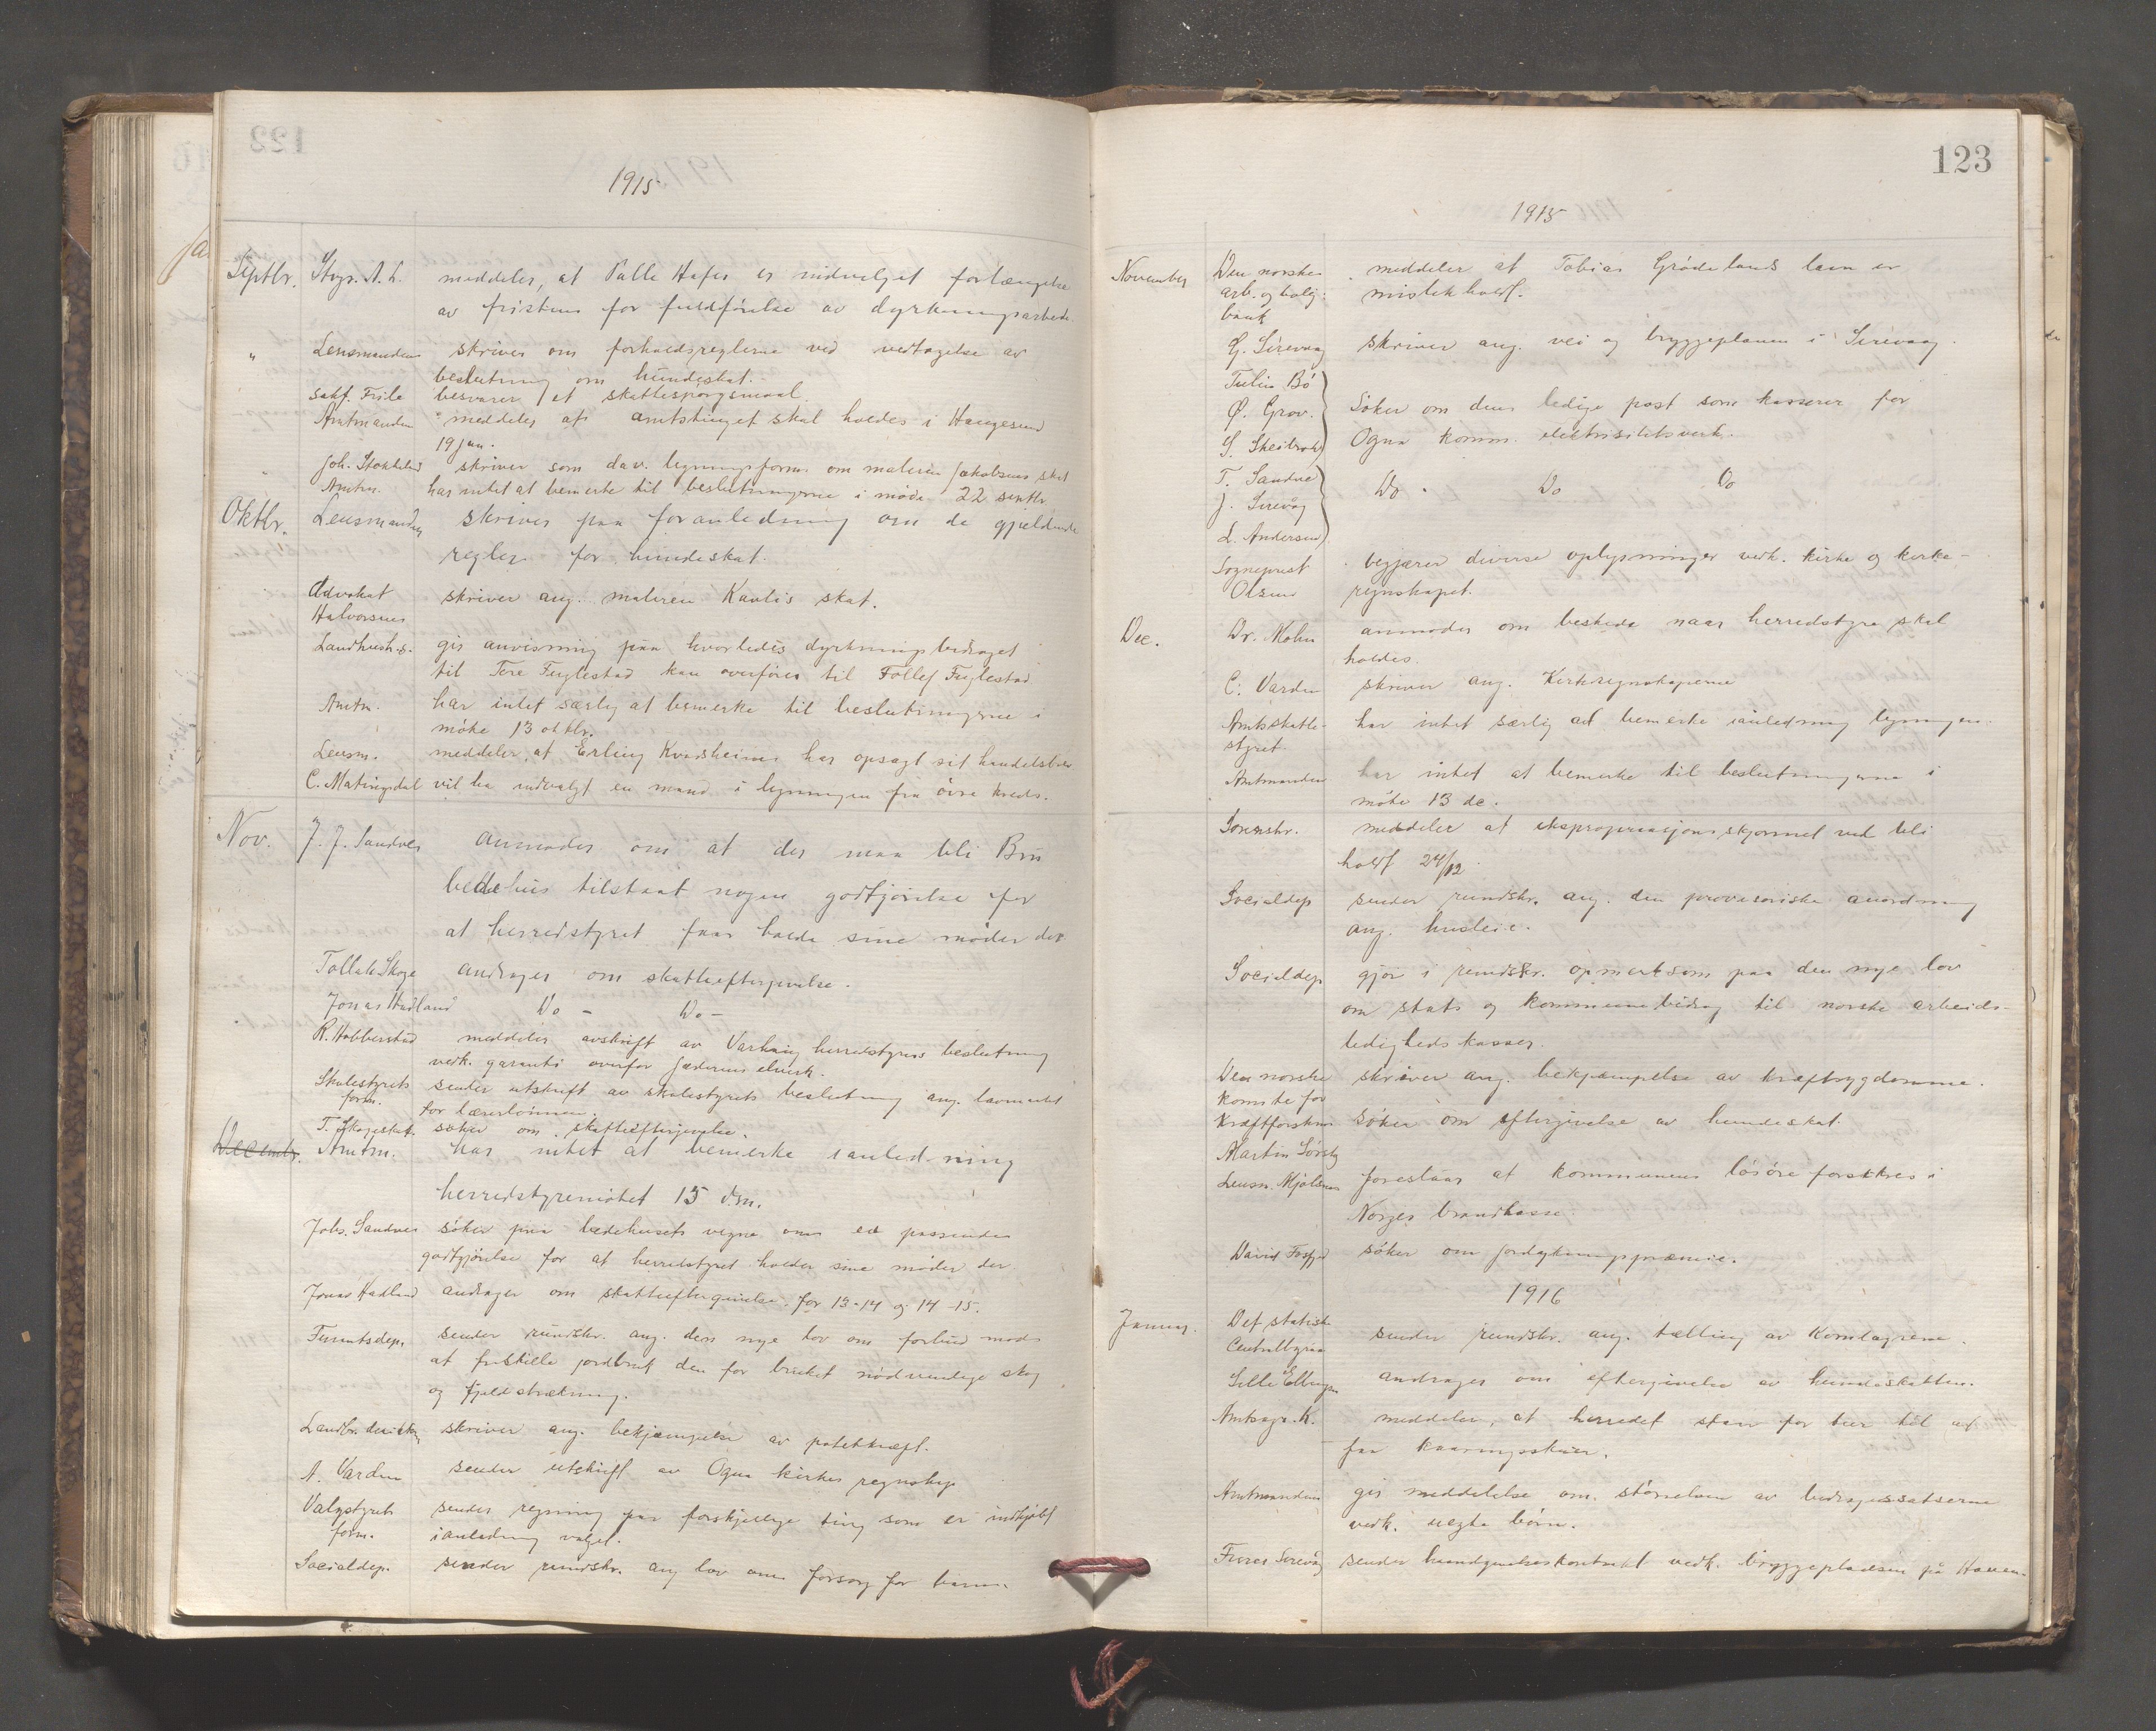 122
1915
Septbr. Stvgr. A. L. meddeler, at Palle Hafes er indvelget forlængelse
av fristen for fuldförelse av dyrkningsarbeide.
" Lensmanden skriver om forholdsreglerne ved vedtagelse av
beslutning om hundeskat.-
sakf. Friile besvarer et skattespörgsmaal.
Amtmanden meddeler at amtstinget skal holdes i Haugesund
19 jan.
Joh. Stokkeland skriver som dav. ligningsform. om maleren Jakobsens skat
Amtm. har intet at bemerke til beslutningerne i möde 22 septbr.
Oktbr. Lensmanden skriver paa foranledning om de gjeldende
regler for hundeskat.
Advokat skriver ang. maleren Kavlis skat.
Halvorsens
Landhush.s. gir anvisning paa hvorledes dyrkningsbidraget
til Tore Fuglestad kan overföres til Follef Fuglestad
Amtm. har intet særlig at bemerke til beslutningerne i
möte 13 oktbr.
Lensm. meddeler, at Erling Kvadsheim har opsagt sit handelsbrev
C. Matingsdal vil ha indvalgt en mand i ligningen fra övre kreds.
Nov. J. J. Sandnes anmoder om at der maa bli Brus
bedehus tilstaat nogen godtjörelse for
at herredstyret faar holde sine möder der
Tollak Skoge andrager om skatteeftergivelse.
Jonas Hadland Do - Do -
R. Hobberstad meddeler avskrift av Varhaug herredstyres beslutning
vedk. garanti overfor Jæderens elverk.
Skolestyrets sender utskrift av skolestyrets beslutning ang. lavmaalet
form. for lærerlönnen.
T. Skogeskat. söker om skatteeftergivelse.
Decembr. Amtm. har intet at bemerke i anledning
herredstyremötet 15 dm.
Johs. Sandnes söker paa bedehusets vegne om en passende
godtgjörelse for at herredstyret holder sine möder der
Jonas Hadland andrager om skatteeftergivelse for 13-14 og 14-15.
sender rundskr. ang. den nye lov om forbud mod
at fraskille jordbruk den for bruket nödvendige skog
og fjeldstrækning.
skriver ang. bekjæmpelse av potetkræft.
A. Varden sender utskrift av Ogna kirkes regnskap
Valgstyrets sender regning paa forskjellige ting som er indkjöbt
form. i anledning valget.
Socialdep. sender rundskr. ang lov om forsorg for barn.
123
1915
November Den norske meddeler at Tobias Grödelands laan er
arb. og bolig: misligholdt.
bank
G. Sirevaag skriver ang. vei og bryggeplanen i Sirevaag.
Bö
Ø. Grov. Söker om den ledige post som kasserer for
S. Skeibrok Ogna komm. elektrisitetsverk.
T. Sandve Do - Do Do
J. Sirevåg
L. Andersen
Sogneprest begjærer diverse oplysninger vedk. kirke og kirke-
Olsen regnskapet.
Dec. Dr. Mohn anmoder om beskede naar herredstyre skal
holdes.
C. Varden skriver ang. Kirkeregnskaperne
Amtsskatte- har intet særlig at bemerke i anledning ligningen
styret.
Amtmanden har intet at bemerke til beslutningerne i
möte 13 de.
Sorenskr. meddeler at ekspropriasjonsskjönnet ved bli
holdt 24/12.
Socialdep sender rundskr. ang. den provisoriske anordning
ang. husleie.
Socialdep gjör i rundskr. opmerksom paa den nye lov
om stats og kommunebidrag til norske arbeids-
ledighedskasser.
Den norske skriver ang. bekjæmpelse av kræftsygdomme.
komite for
Kræftforskn. söker om eftergivelse av hundeskat.
Martin
Lensm. Mjölsnes foreslaar at kommunens lösöre forsikres i
Norges brandkasse.
David söker om jorddyrkningspræmie.
1916
Januar. Det statist. sender rundskr. ang. tælling av Kornlagrene.
Centralbyraa
Sille andrager om eftergivelse av hundeskatten.
Amtsagr. K. meddeler, at herredet staar for tur til at
faa kaaringsskuer.
Amtmanden gir meddelelse om störrelsen av bidragssatserne
vedk. uegte börn.
Sirevåg sender kontrakt vedk. bryggepladsen på Haven.